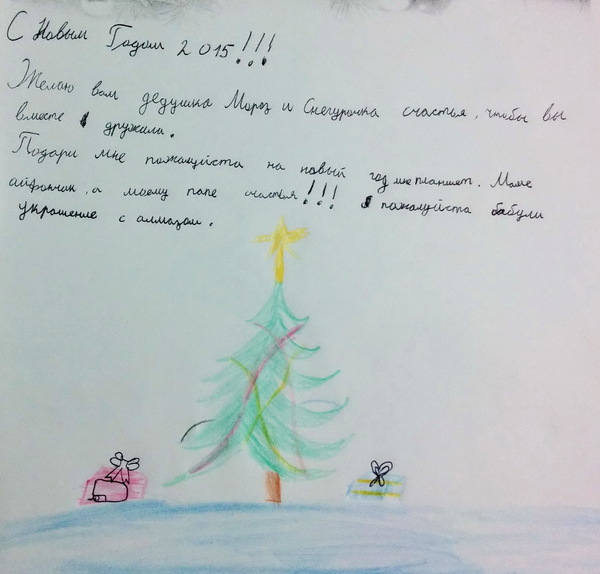 С Новым Годом 2015!!!
Желаю вам дедушка Мороз и Снегурочка счастья, чтобы вы
вместе дружили.
Подари мне пожалуйста на новый год мне планшет. Маме
айфончик, а моему папе счастья!!! пожалуйста бабули
украшение с алмазом.